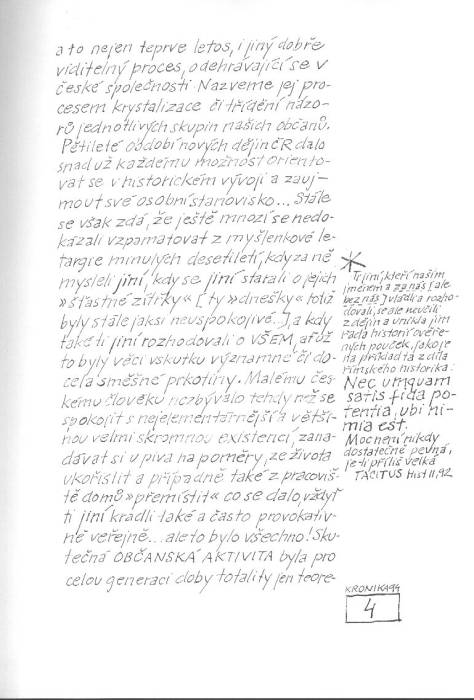 a to nejen teprve letos, i jiný dobře
viditelný proces, odehrávající se v
české společnosti. Nazveme jej pro-
cesem krystalizace či třídění názo-
rů jednotlivých skupin našich občanů.
Pětileté období nových dějin ČR dalo
snad už každému možnost oriento-
vat se v historickém vývoji a zauj-
mout své osobní stanovisko... Stále
se však zdá, že ještě mnozí se nedo-
kázali vzpamatovat z myšlenkové le-
targie minulých desetiletí, kdy za ně
mysleli jiní, kdy se jiní starali o jejich
»šťastné zítřky« [ty »dnešky« totiž
byly stále jaksi neuspokojivé.], a kdy
také ti jiní rozhodovali o VŠEM, ať už
to byly věci vskutku významné či do-
cela směšné prkotiny. Malému čes-
kému člověku nezbývalo tehdy než se
spokojit s nejelementárnější a větši-
nou velmi skromnou existencí, zana-
dávat si u piva na poměry, ze života
ukořistit a případně také z pracoviš-
tě domů »přemístit« co se dalo, vždyť
ti jiní kradli také a často provokativ-
ně veřejně... ale to bylo všechno! Sku-
tečná OBČANSKÁ AKTIVITA byla pro
celou generaci doby totality jen teore-
* Ti jiní, kteří naším
jménem a za nás [ale
bez nás] vládli a rozho-
dovali, se ale neučili
z dějin a unikla jim
řada historií ověře-
ných pouček, jako je
na příklad ta z díla
římského historika:
Nec umquam
satis fida po-
tentia, ubi ni-
mia est.
Moc není nikdy
dostatečně pevná,
je-li příliš velká
TACITUS Hist II, 92
KRONIKA 94
4